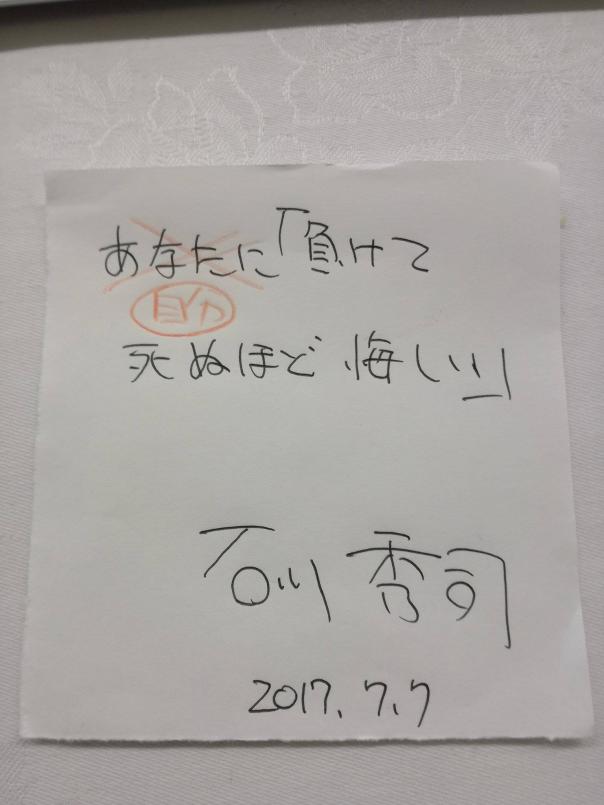 あなたに「負けて
自分
死ぬほど 悔しい」
石川 秀司
2017.7.7